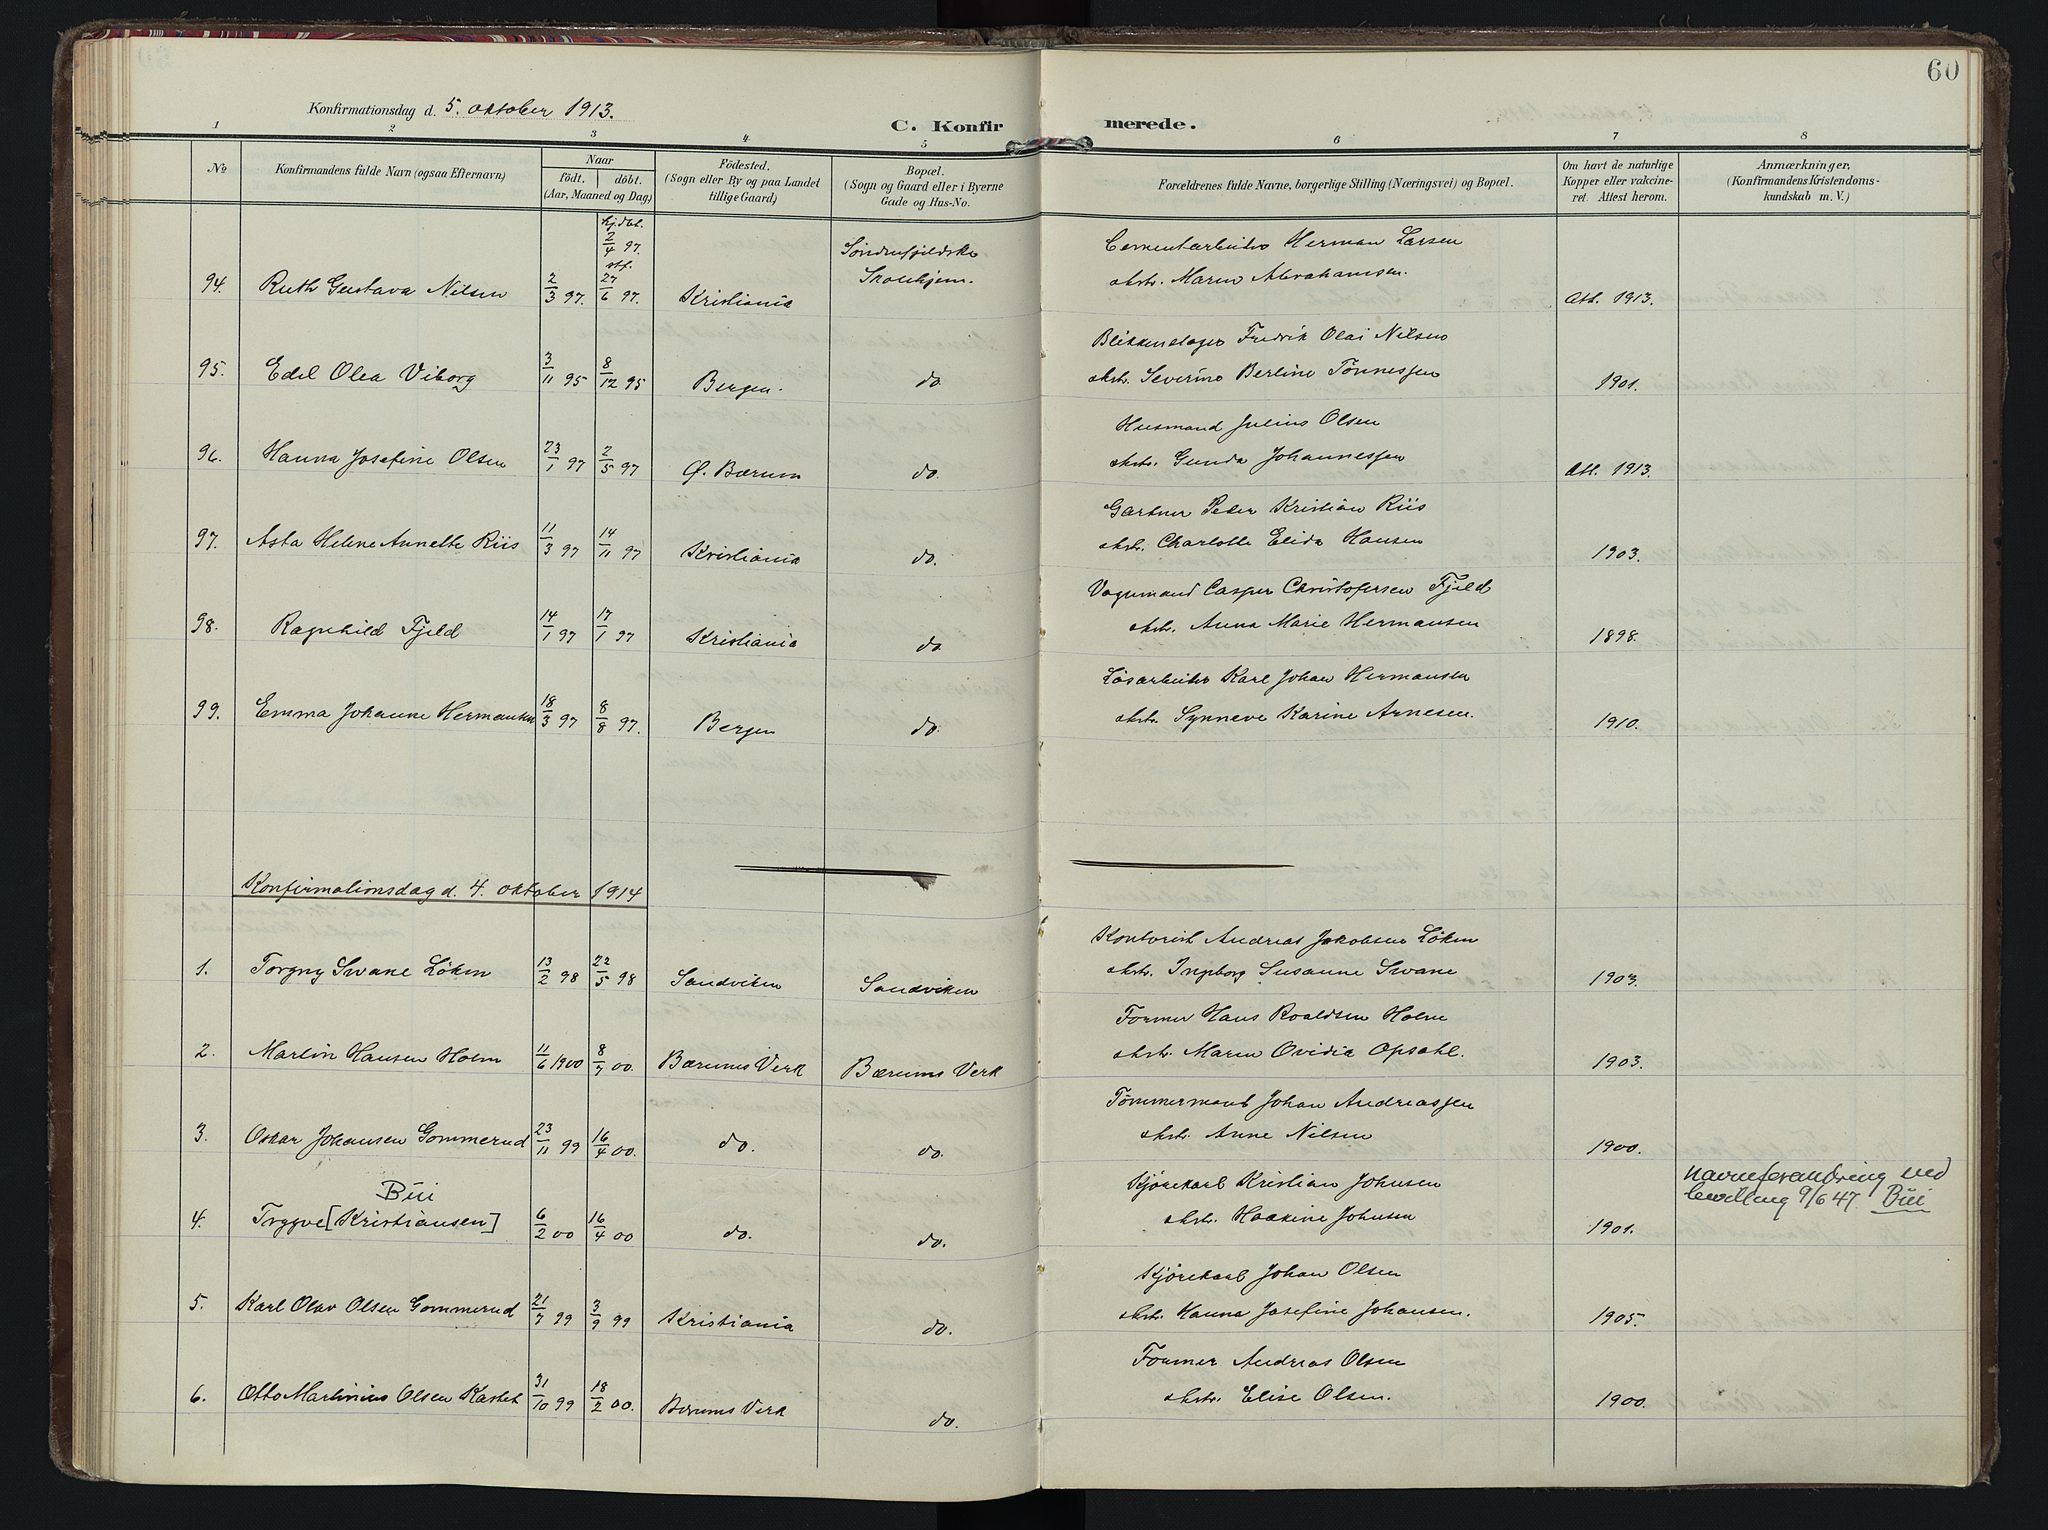 60
Konfirmationsdag d. 5. oktober 1913.
C. Konfirmerede.
1 2 3 4 5 6 7 8
No
Konfirmandens fulde Navn (ogsaa Efternavn)
Naar
født. døbt.
(Aar, Maaned og Dag)
Fødested.
(Sogn eller By og paa Landet
tillige Gaard)
Bopæl.
(Sogn og Gaard eller i Byerne
Gade og Hus-No.
Forældrenes fulde Navne, borgerlige Stilling (Næringsvei) og Bopæl.
Om havt de naturlige
Kopper eller vakcine-
ret. Attest herom.
Anmærkninger,
(Konfirmandens Kristendoms-
kundskab m. V.)
94. Ruth Gustava Nilsen 2/3 97. hj.dbt. 2/4 97. stf. 27/6 97. Kristiania Søndenfjeldske Skolehjem. Cementarbeider Herman Larsen
Maren Abrahamsen. Att. 1913.
95. Edel Olea Viborg 3/11 95 8/12 95 Bergen. do. Blikkenslager Fredrik Olai Nilsen
Severine Berline Tønnessen 1901.
96. Hanna Josefine Olsen 23/1 97 2/5 97 Ø. Bærum do. Husmand Julius Olsen
Gunda Johannessen Att. 1913.
97. Asta Helene Annette Riis 11/3 97 14/11 97 Kristiania do. Gartner Peder Kristian Riis
Charlotte Elida Hansen 1903.
98. Ragnhild Fjeld 14/1 97 17/1 97 Kristiania do. Vognmand Casper Christofersen Fjeld
Anna Marie Hermansen 1898.
99. Emma Johanne Hermansen 18/3 97 8/8 97. Bergen do. Løsarbeider Karl Johan Hermansen
Synneve Karine Arnesen. 1910.
Konfirmationsdag d. 4. oktober 1914
1. Torgny Swane Løken 13/2 98 22/5 98 Sandviken Sandviken Kontorist Andreas Jakobsen Løken
Ingeborg Susanne Swane 1903.
2. Martin Hansen Holm 11/6 1900 8/7 00. Bærums Verk Bærums Verk Former Hans Roaldsen Holm
Maren Ovidia Opsahl. 1903.
3. Oskar Johansen Gommerud 23/11 99 16/4 00. do. do. Tømmermand Johan Andreassen
Anne Nilsen 1900.
Büi
4. Trygve [Kristiansen] 6/2 00 16/4 00 do. do. Kjørekarl Kristian Johnsen
Haakine Johnsen 1901. navneforandring ved
bevilling 9/6 47. Büi
5. Karl Olav Olsen Gommerud 21/7 99 3/9 99 Kristiania do. Kjørekarl Johan Olsen
Hanna Josefine Johansen. 1905.
6. Otto Martinius Olsen Kastet 31/10 99 18/2 00. Bærums Verk do. Former Andreas Olsen
Elise Olsen. 1900.